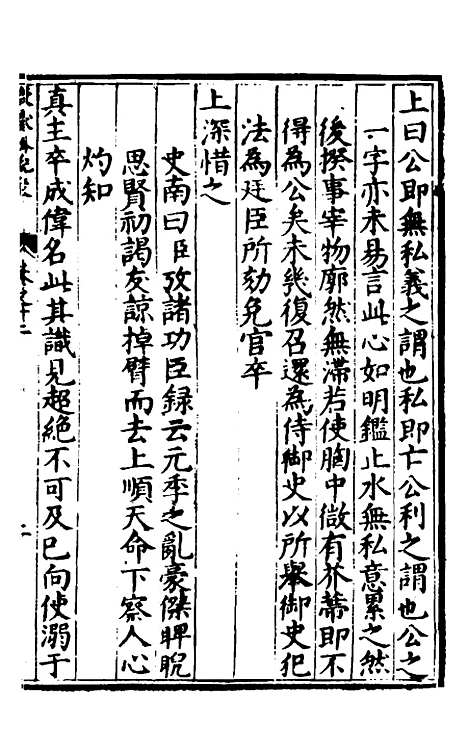 上曰公即無私義之謂也私即亡公利之謂也公之
一字亦未易言此心如明鑑止水無私意累之然
後揆事宰物廓然無滯若使胸中微有芥蔕即不
得為公矣未幾復召還為侍御史以所舉御史犯
法為廷臣所劾免官卒
上深惜之
史南曰臣攷諸功臣録云元季之亂豪傑睥睨
思賢初謁友諒掉臂而去上順天命下察人心
灼知
真主卒成偉名此其識見超絕不可及已向使溺于